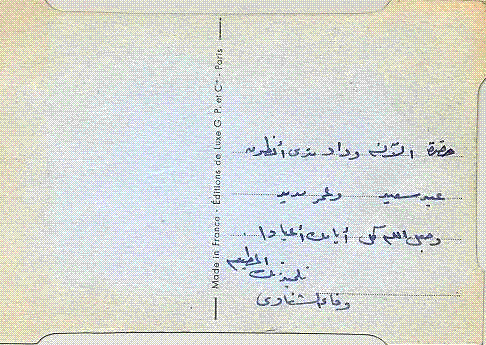 Made in France - Éditions de Luxe G. P. et Cie - Paris
حضرة الآنسة وداد
عيد سعيد وعمر مديد
وجعل الله كل أيامك أعيادا .
تلميذتك المطيعة